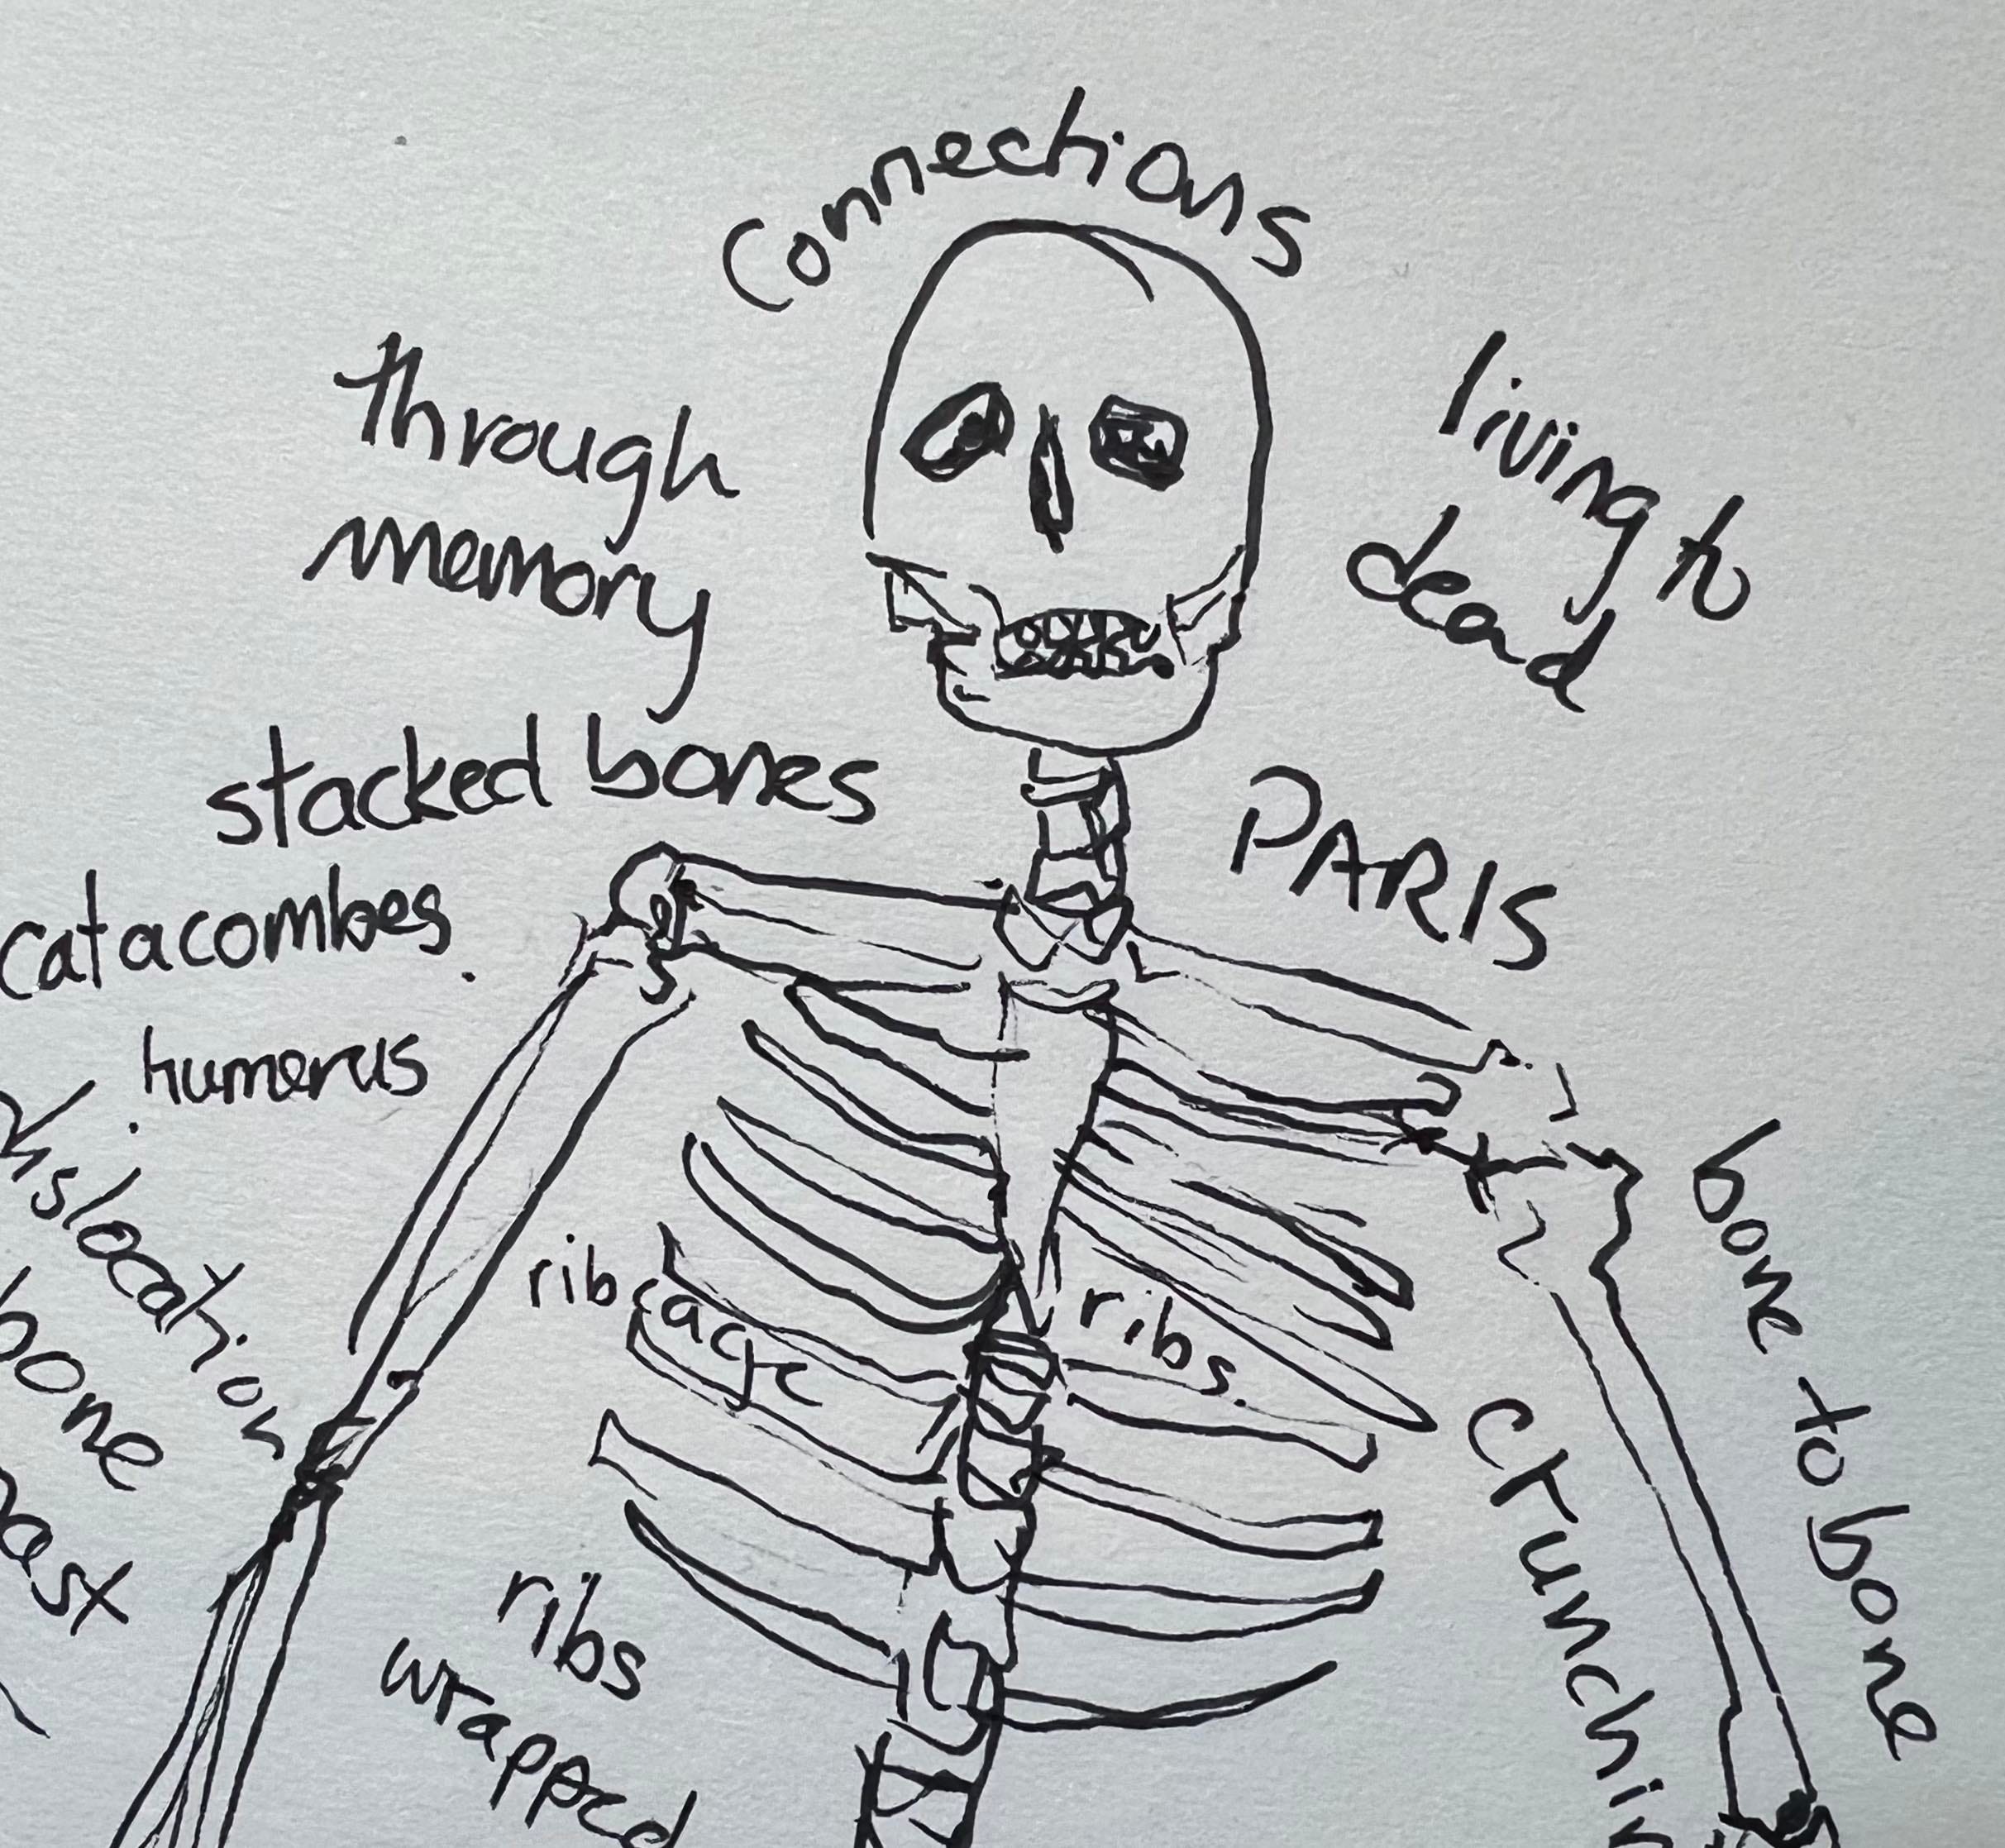 Connections
through
memory
living to
dead
stacked bones
PARIS
catacombes
humerus
dislocation
bone
bone to bone
rib cage
ribs
crunchin
ribs
wrapped